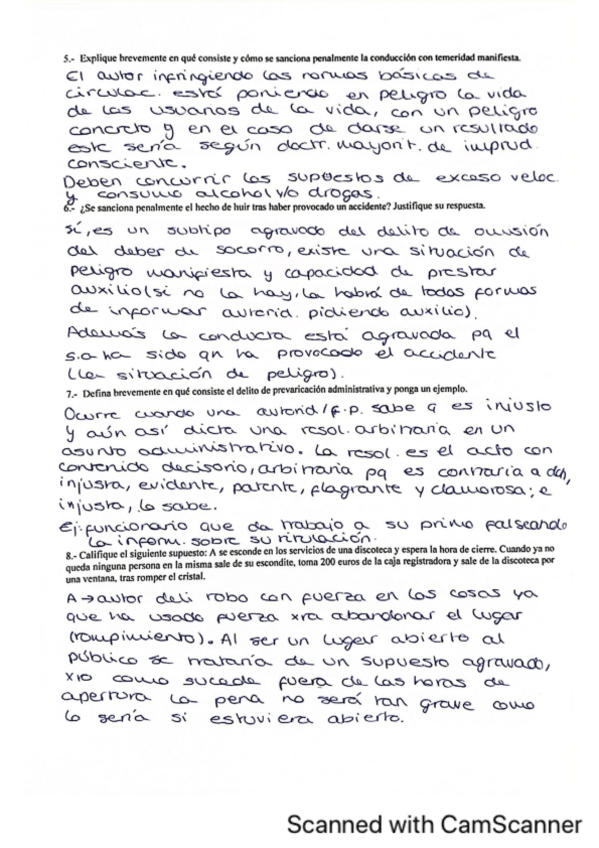 5.- Explique brevemente en qué consiste y cómo se sanciona penalmente la conducción con temeridad manifiesta.
El autor infringiendo las normas básicas de
circulac. está poniendo en peligro la vida
de los usuarios de la vida, con un peligro
concreto y en el caso de darse un resultado
este sería según doctr. mayorit. de imprud.
consciente.
Deben concurrir los supuestos de exceso veloc.
y consumo alcohol y/o drogas.
6.- ¿Se sanciona penalmente el hecho de huir tras haber provocado un accidente? Justifique su respuesta.
Sí, es un subtipo agravado del delito de omisión
del deber de socorro, existe una situación de
peligro manifiesta y capacidad de prestar
auxilio (si no la hay, la habrá de todas formas
de informar autorid. pidiendo auxilio).
Además la conducta está agravada pq el
s.a ha sido qn ha provocado el accidente
(la situación de peligro).
7.- Defina brevemente en qué consiste el delito de prevaricación administrativa y ponga un ejemplo.
Ocurre cuando una autorid/f.p. sabe q es injusto
y aún así dicta una resol. arbitraria en un
asunto administrativo. La resol. es el acto con
contenido decisorio, arbitraria pq es contraria a dch,
injusta, evidente, patente, flagrante y clamorosa; e
injusta, lo sabe.
Ej: funcionario que da trabajo a su primo falseando
la inform. sobre su titulación.
8.- Califique el siguiente supuesto: A se esconde en los servicios de una discoteca y espera la hora de cierre. Cuando ya no
queda ninguna persona en la misma sale de su escondite, toma 200 euros de la caja registradora y sale de la discoteca por
una ventana, tras romper el cristal.
A → autor deli robo con fuerza en las cosas ya
que ha usado fuerza xra abandonar el lugar
(rompimiento). Al ser un lugar abierto al
público se trataría de un supuesto agravado,
xro como sucede fuera de las horas de
apertura la pena no será tan grave como
lo sería si estuviera abierto.
Scanned with CamScanner